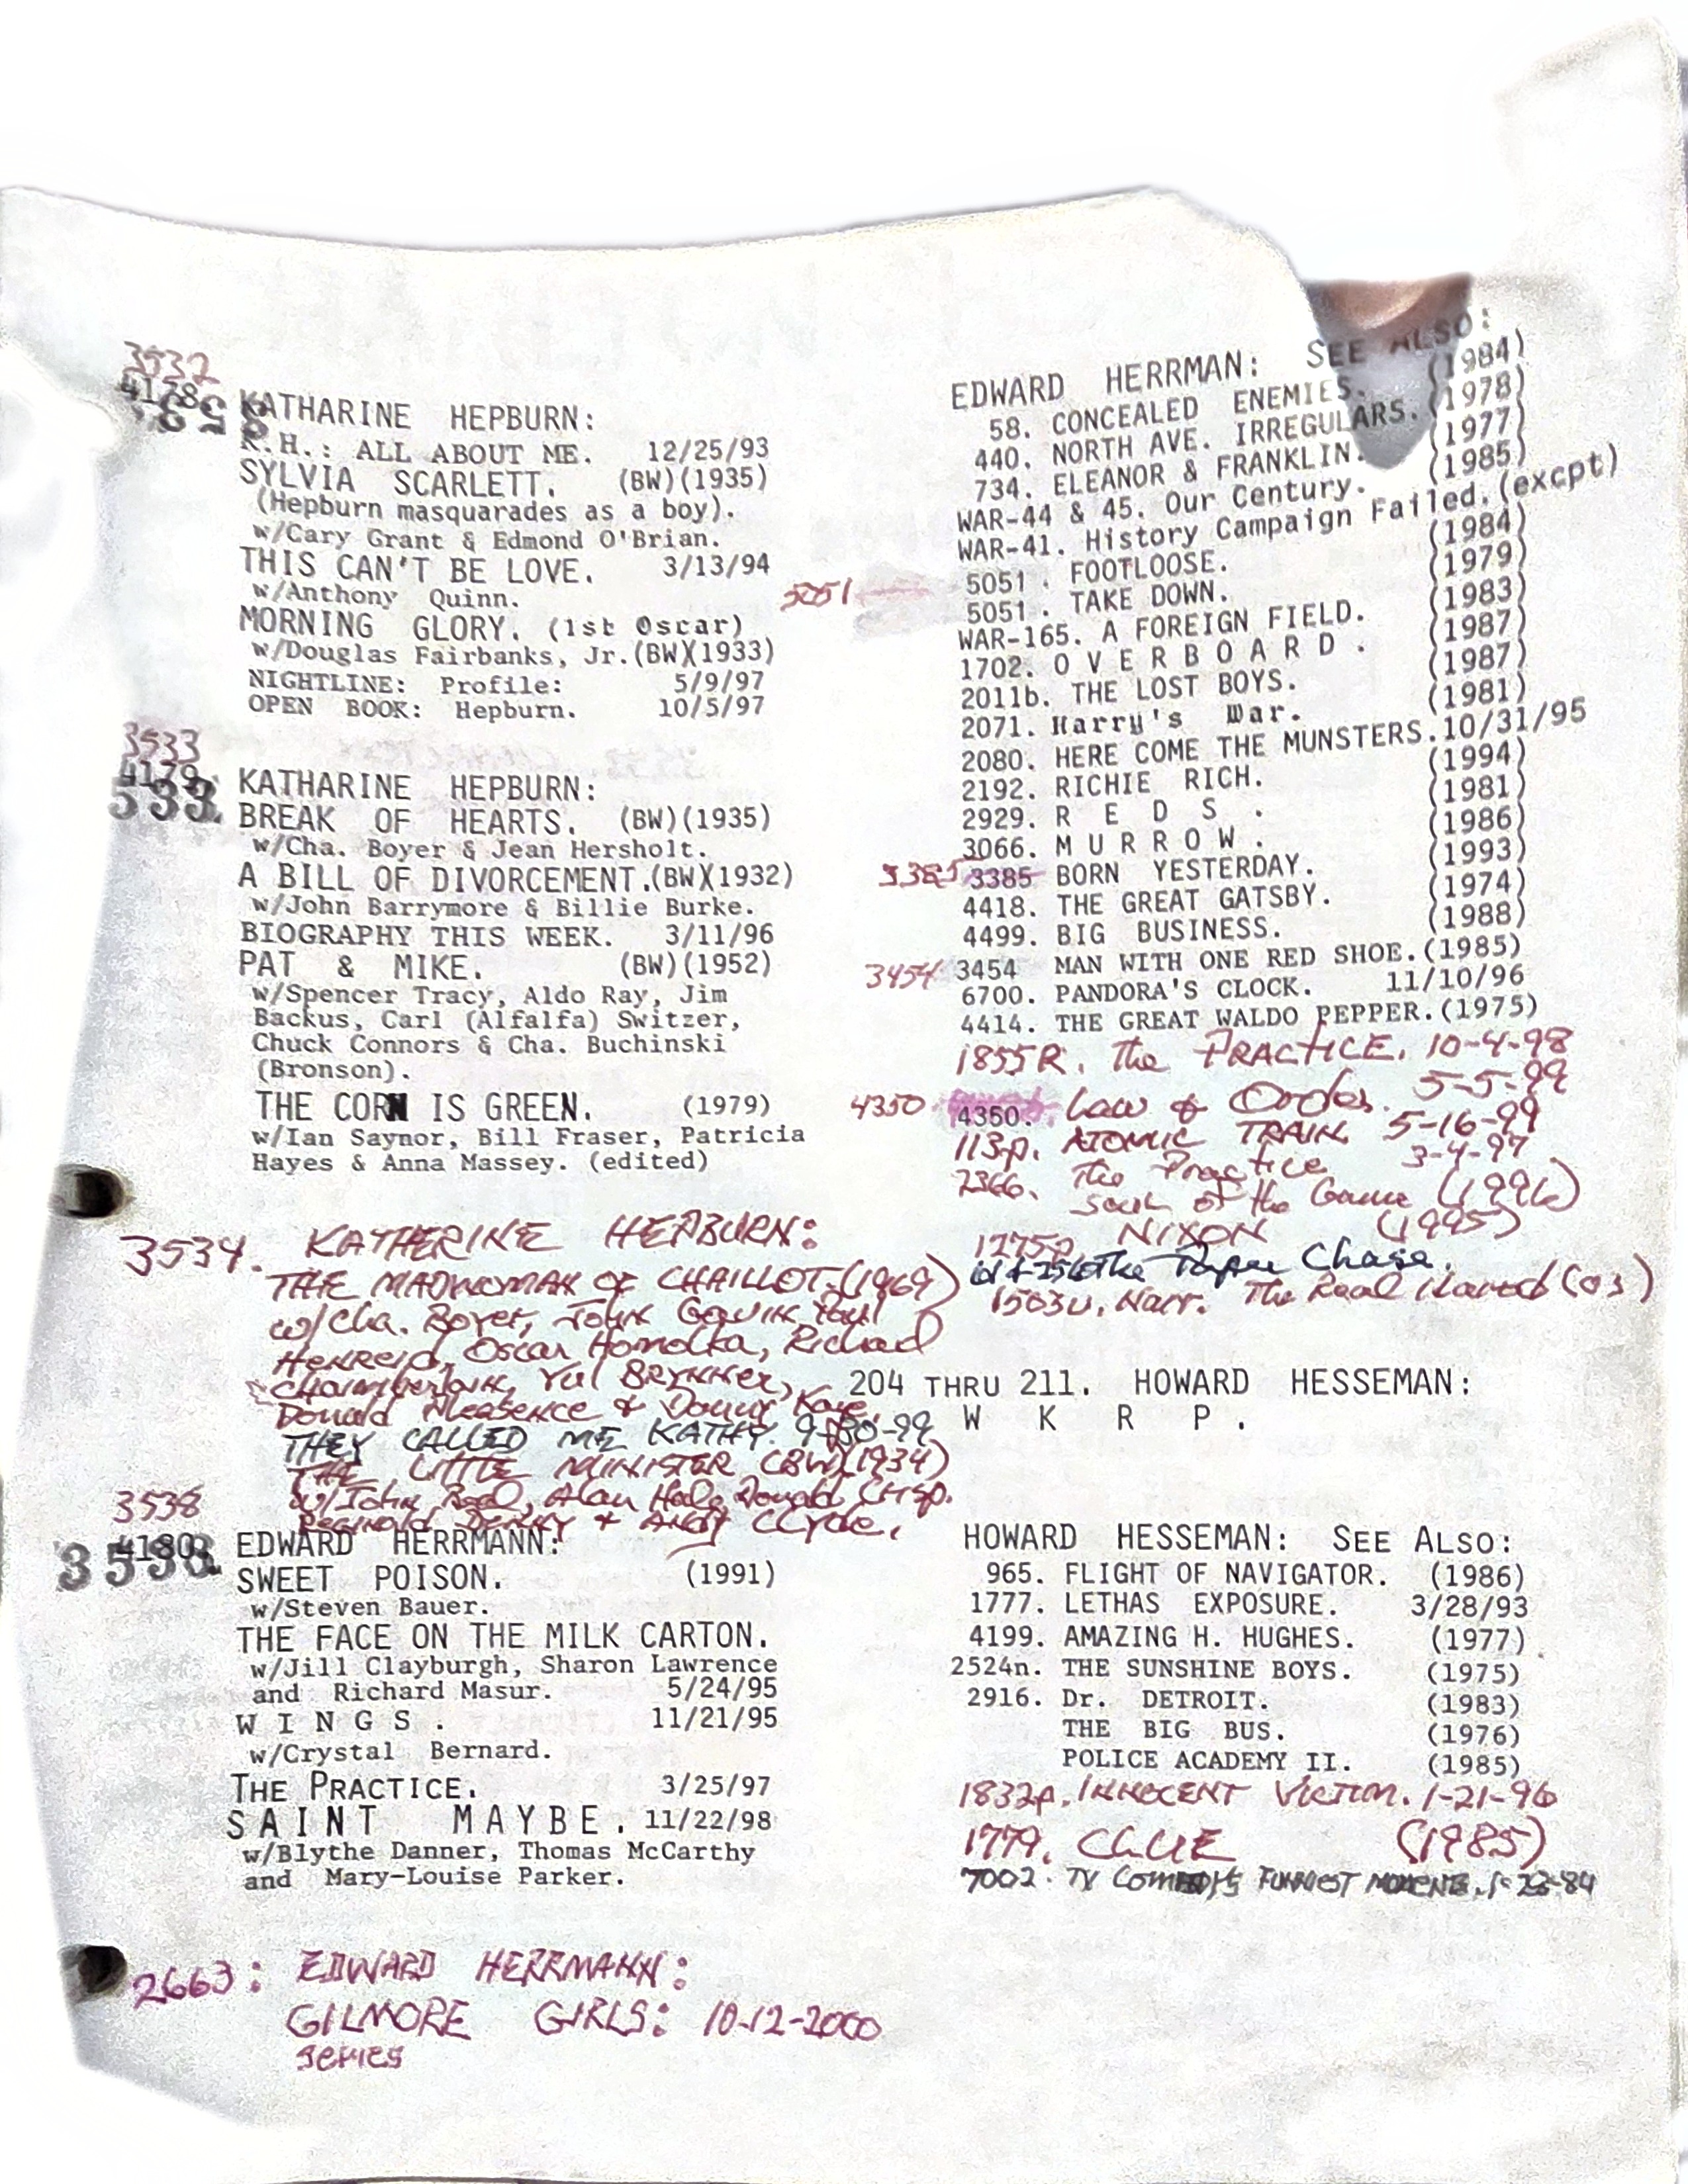 3532
4178
KATHARINE HEPBURN:
K.H.: ALL ABOUT ME. 12/25/93
SYLVIA SCARLETT. (BW)(1935)
(Hepburn masquarades as a boy).
w/Cary Grant & Edmond O'Brian.
THIS CAN'T BE LOVE. 3/13/94
w/Anthony Quinn.
MORNING GLORY. (1st Oscar)
w/Douglas Fairbanks, Jr.(BW)(1933)
NIGHTLINE: Profile: 5/9/97
OPEN BOOK: Hepburn. 10/5/97
3533
4179.
533.
KATHARINE HEPBURN:
BREAK OF HEARTS. (BW)(1935)
w/Cha. Boyer & Jean Hersholt.
A BILL OF DIVORCEMENT.(BW)(1932)
w/John Barrymore & Billie Burke.
BIOGRAPHY THIS WEEK. 3/11/96
PAT & MIKE. (BW)(1952)
w/Spencer Tracy, Aldo Ray, Jim
Backus, Carl (Alfalfa) Switzer,
Chuck Connors & Cha. Buchinski
(Bronson).
THE CORN IS GREEN. (1979)
w/Ian Saynor, Bill Fraser, Patricia
Hayes & Anna Massey. (edited)
3534. KATHERINE HEPBURN:
THE MADWOMAN OF CHAILLOT.(1969)
w/Cha. Boyer, John Gavin, Paul
Henreid, Oscar Homolka, Richard
Chamberlain, Yul Brynner,
Donald Pleasence & Danny Kaye.
THEY CALLED ME KATHY. 9-30-99
THE LITTLE MINISTER (BW)(1934)
w/John Beal, Alan Hale, Donald Crisp.
Reginald Denny & Andy Clyde.
3538
4180.
3538.
EDWARD HERRMANN:
SWEET POISON. (1991)
w/Steven Bauer.
THE FACE ON THE MILK CARTON.
w/Jill Clayburgh, Sharon Lawrence
and Richard Masur. 5/24/95
W I N G S . 11/21/95
w/Crystal Bernard.
THE PRACTICE. 3/25/97
SAINT MAYBE. 11/22/98
w/Blythe Danner, Thomas McCarthy
and Mary-Louise Parker.
2663: EDWARD HERRMANN:
GILMORE GIRLS: 10-12-2000
series
EDWARD HERRMAN: SEE ALSO:
58. CONCEALED ENEMIES. (1984)
440. NORTH AVE. IRREGULARS. (1978)
734. ELEANOR & FRANKLIN. (1977)
WAR-44 & 45. Our Century. (1985)
WAR-41. History Campaign Failed.(excpt)
5051 . FOOTLOOSE. (1984)
5051 5051 . TAKE DOWN. (1979)
WAR-165. A FOREIGN FIELD. (1983)
1702. O V E R B O A R D . (1987)
2011b. THE LOST BOYS. (1987)
2071. Harry's War. (1981)
2080. HERE COME THE MUNSTERS.10/31/95
2192. RICHIE RICH. (1994)
2929. R E D S . (1981)
3066. M U R R O W . (1986)
3385 3385 BORN YESTERDAY. (1993)
4418. THE GREAT GATSBY. (1974)
4499. BIG BUSINESS. (1988)
3454 3454 MAN WITH ONE RED SHOE.(1985)
6700. PANDORA'S CLOCK. 11/10/96
4414. THE GREAT WALDO PEPPER.(1975)
1855R. The PRACTICE. 10-4-98
4350 4350. Law & Order. 5-5-99
113p. ATOMIC TRAIN. 5-16-99
2366. The Practice 3-4-97
Soul of the Game (1996)
1275p. NIXON (1995)
The Paper Chase.
1503U, Narr. The Real (03)
204 THRU 211. HOWARD HESSEMAN:
W K R P .
HOWARD HESSEMAN: SEE ALSO:
965. FLIGHT OF NAVIGATOR. (1986)
1777. LETHAS EXPOSURE. 3/28/93
4199. AMAZING H. HUGHES. (1977)
2524n. THE SUNSHINE BOYS. (1975)
2916. Dr. DETROIT. (1983)
THE BIG BUS. (1976)
POLICE ACADEMY II. (1985)
1832p. INNOCENT VICTIM. 1-21-96
1779. CLUE (1985)
7002. TV COMEDYS FUNNIEST MOMENTS.